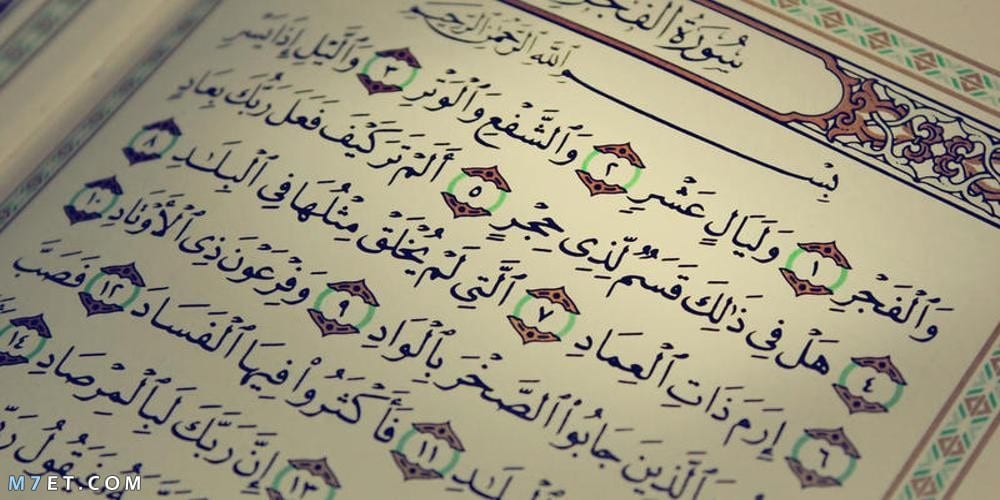 سُورَةُ الْفَجْرِ
بِسْمِ اللَّهِ الرَّحْمَٰنِ الرَّحِيمِ
وَٱلْفَجْرِ ١ وَلَيَالٍ عَشْرٍ ٢ وَٱلشَّفْعِ وَٱلْوَتْرِ ٣ وَٱلَّيْلِ إِذَا يَسْرِ
٤ هَلْ فِى ذَٰلِكَ قَسَمٌ لِّذِى حِجْرٍ ٥ أَلَمْ تَرَ كَيْفَ فَعَلَ رَبُّكَ بِعَادٍ
٦ إِرَمَ ذَاتِ ٱلْعِمَادِ ٧ ٱلَّتِى لَمْ يُخْلَقْ مِثْلُهَا فِى ٱلْبِلَٰدِ ٨
ٱلَّذِينَ جَابُوا۟ ٱلصَّخْرَ بِٱلْوَادِ ٩ وَفِرْعَوْنَ ذِى ٱلْأَوْتَادِ ١٠
١١ فَأَكْثَرُوا۟ فِيهَا ٱلْفَسَادَ ١٢ فَصَبَّ
١٣ إِنَّ رَبَّكَ لَبِٱلْمِرْصَادِ ١٤
فَيَقُولُ
M7ET.COM